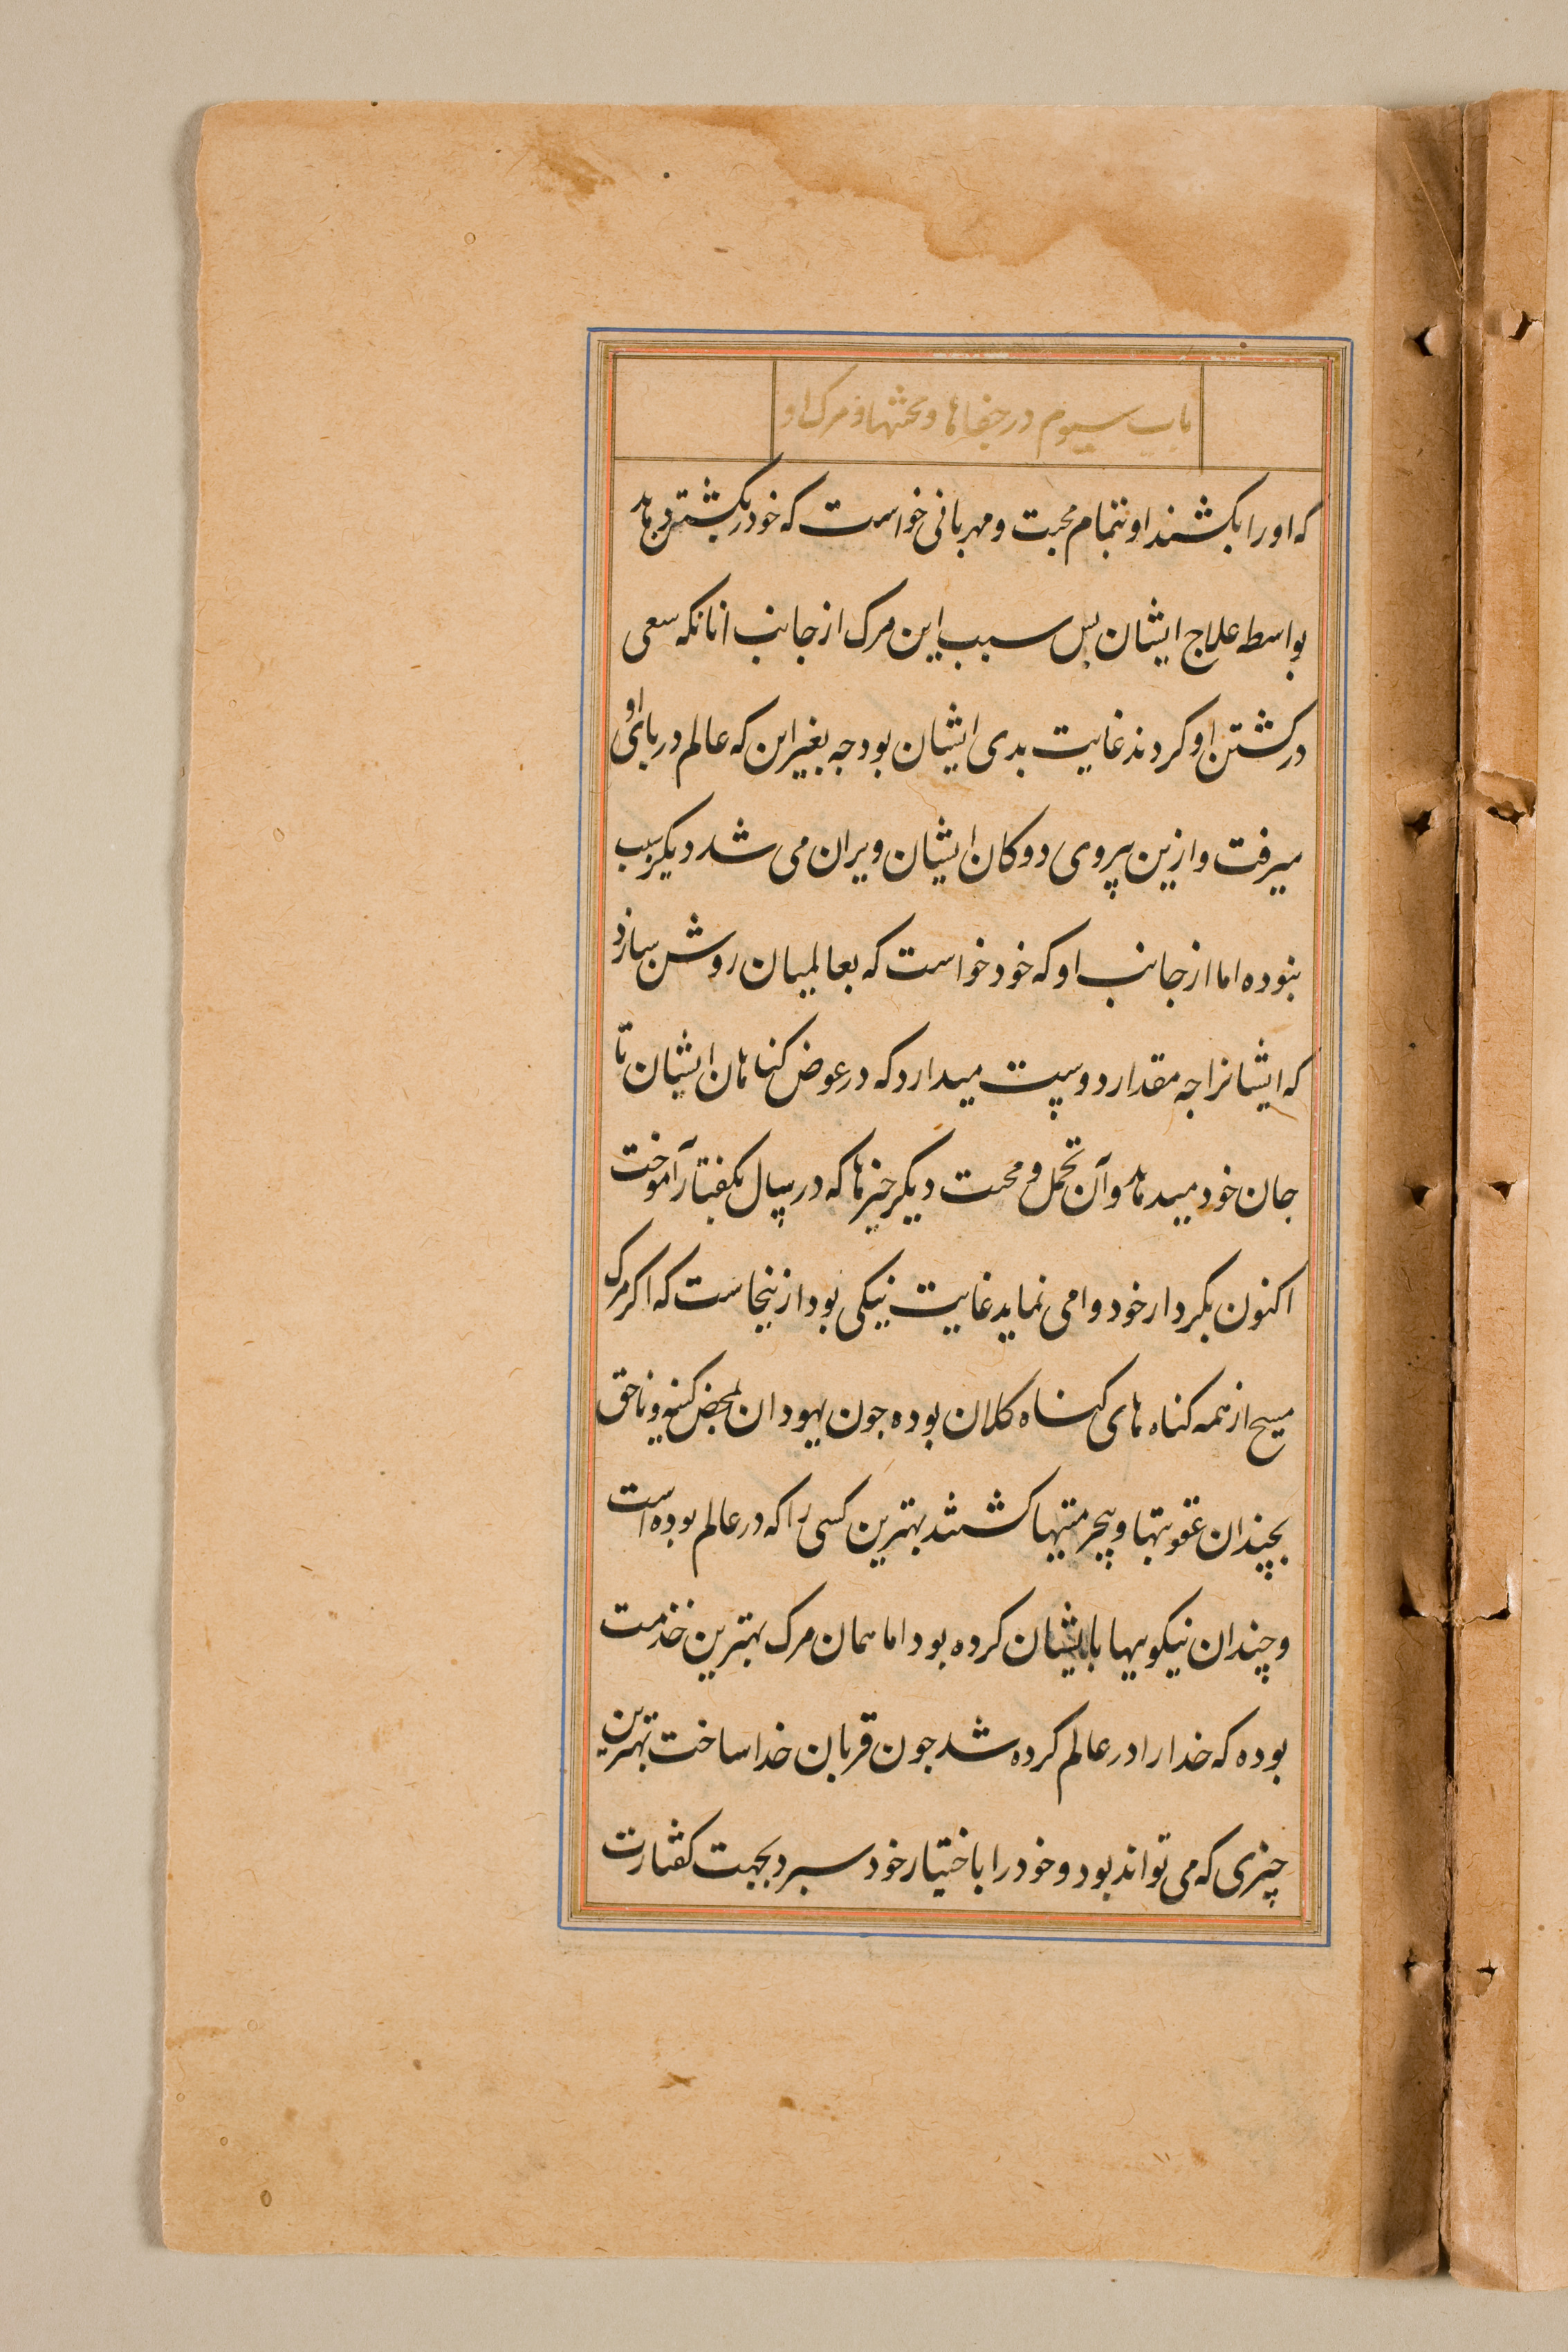 باب سیوم در جفاها و محنتها و مرک او
که او را بکشند او بتمام محبت و مهربانی خواست که خود را بکشتن دهد
بواسطه علاج ایشان پس سبب این مرک از جانب انانکه سعی
در کشتن او کردند غایت بدی ایشان بود جه بغیر این که عالم در پای او
میرفت و ازین پیروی دوکان ایشان ویران می شد دیکر سبب
نبوده اما از جانب او که خود خواست که بعالمیان روشن سازد
که ایشانرا جه مقدار دوست میدارد که در عوض کناهان ایشان تا
جان خود میدهد و آن تحمل و محبت دیکر چیزها که در سه سال بکفتار آموخت
اکنون بکردار خود وامی نماید غایت نیکی بود ازینجاست که اکر مرک
مسیح از همه کناه های کناه کلان بوده جون یهودان بمحض کینه و ناحق
بچندان عقوبتها و بیحرمتیها کشتند بهترین کسی را که در عالم بوده است
و چندان نیکوییها بایشان کرده بود اما همان مرک بهترین خدمت
بوده که خدا را در عالم کرده شد جون قربان خدا ساخت بهترین
چیزی که می تواند بود و خود را باختیار خود سپرد بجهت کفارت